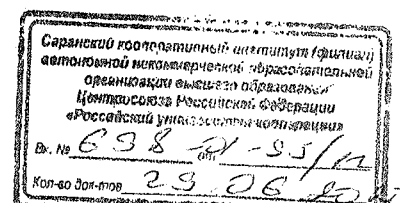 Саранский кооперативный институт (филиал)
автономной некоммерческой образовательной
организации высшего образования
Центросоюза Российской Федерации
«Российский университет кооперации»
Вх. №
Кол-во док-тов 29.06